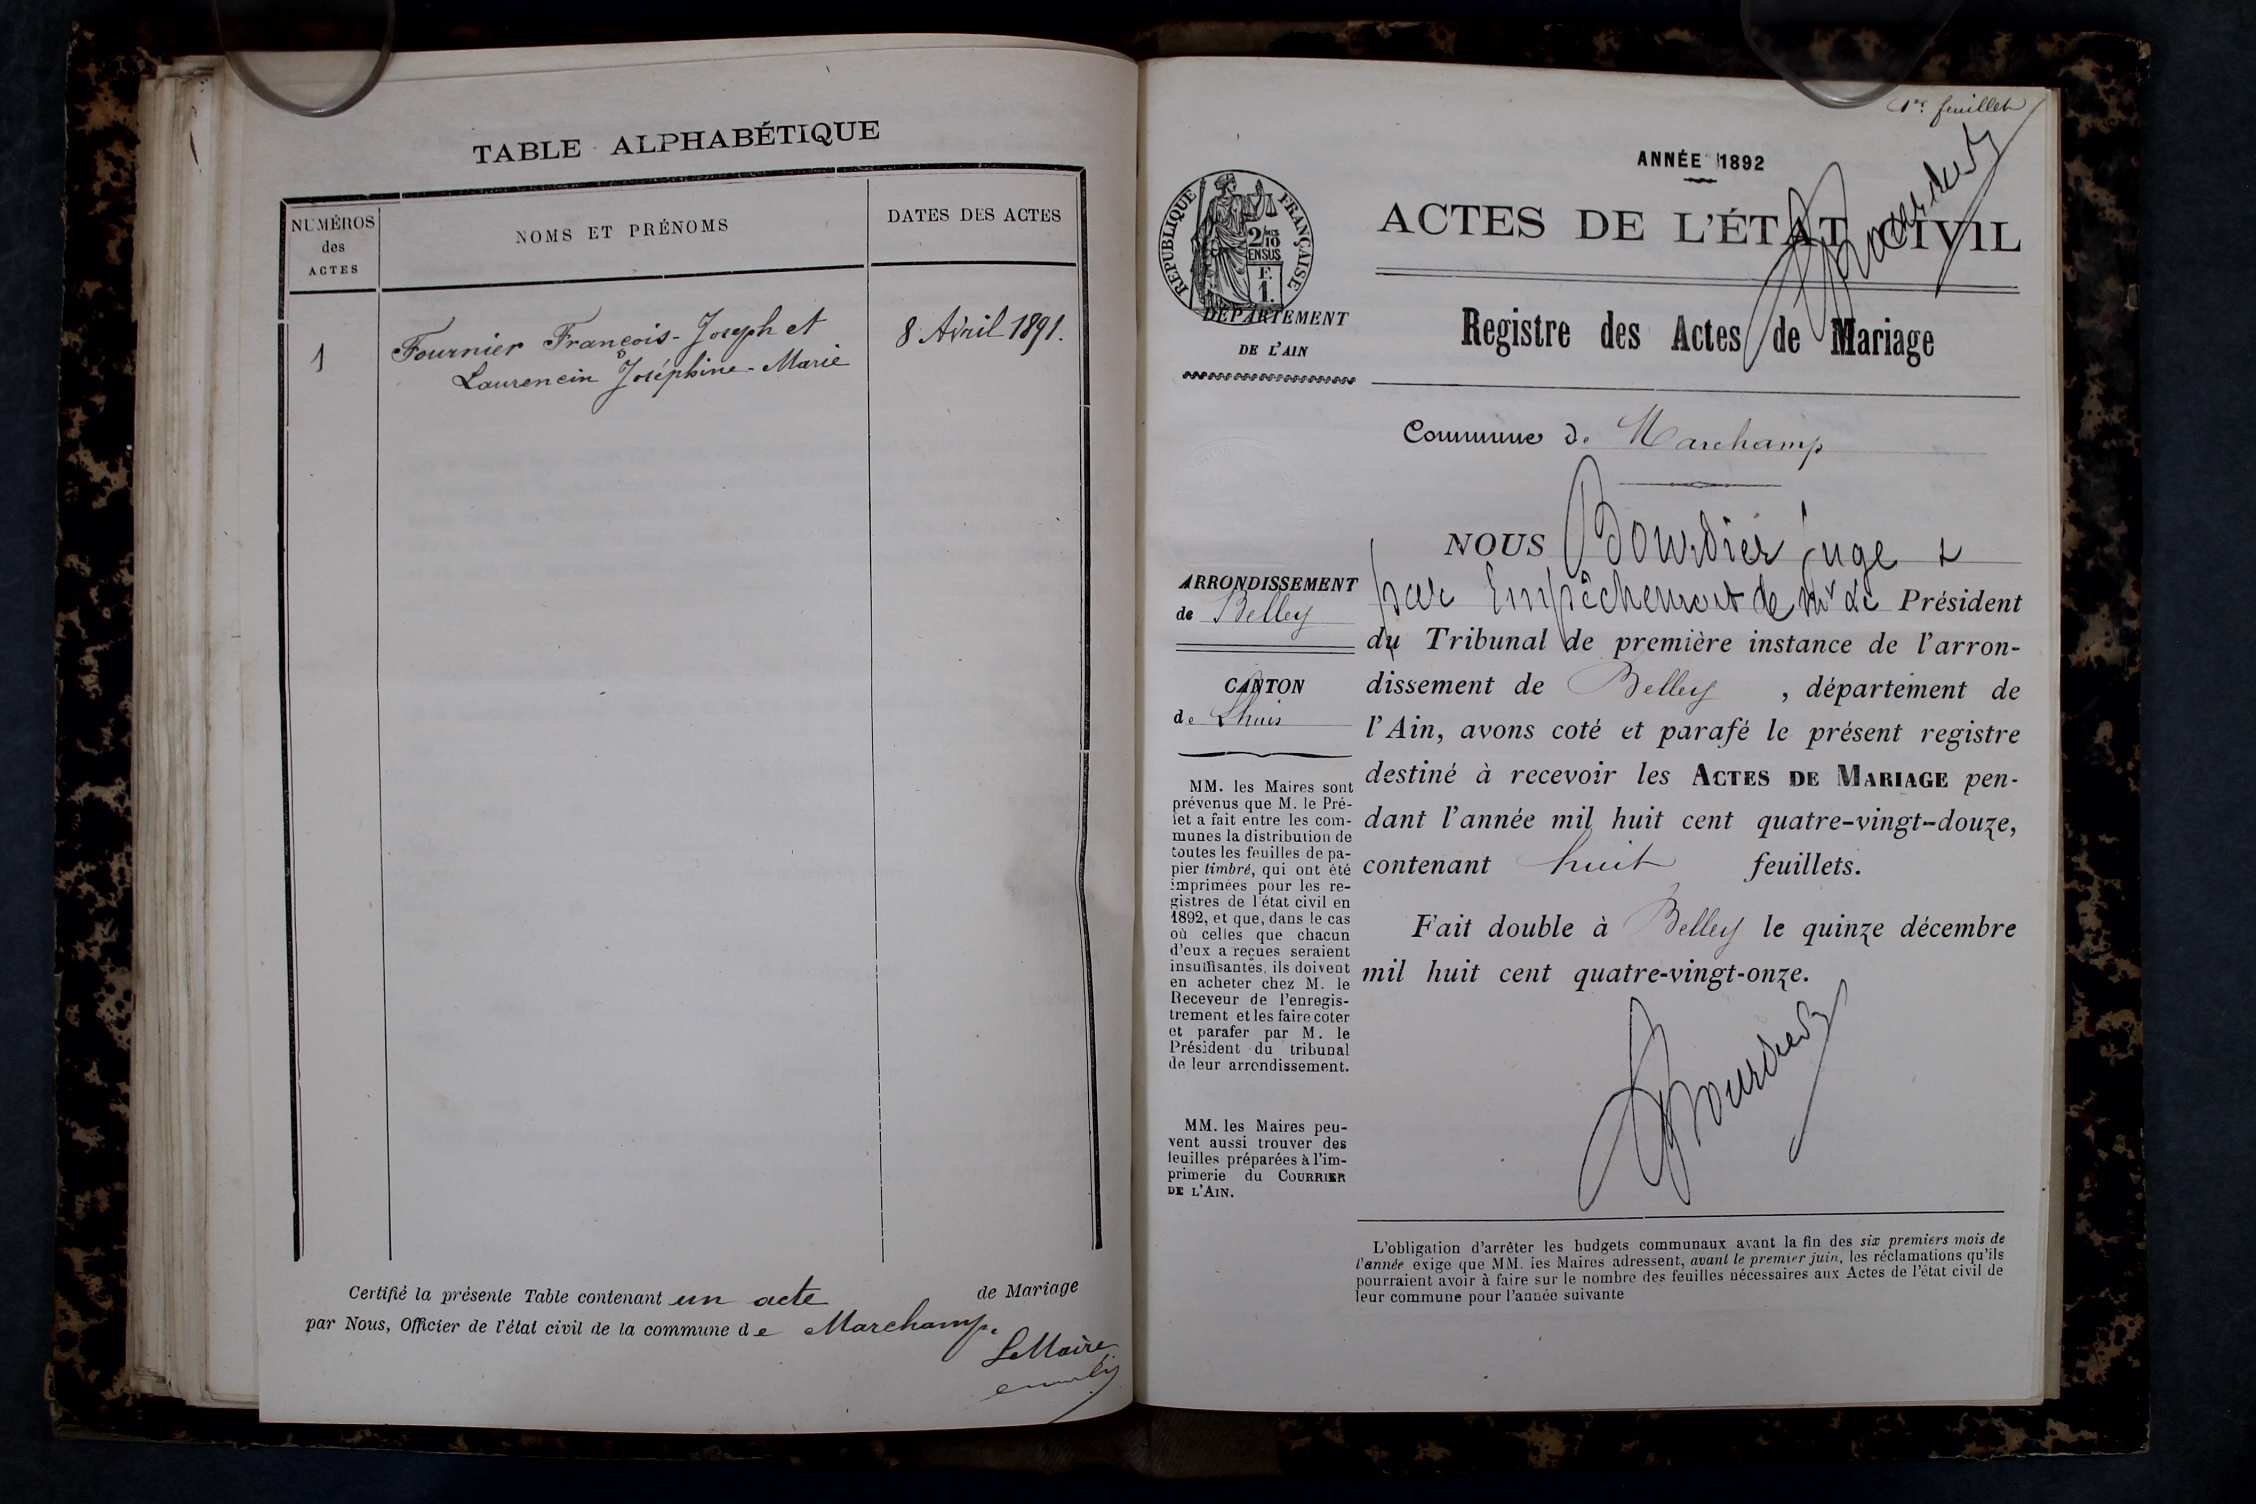 TABLE ALPHABÉTIQUE
NUMÉROS
des
ACTES
NOMS ET PRÉNOMS
DATES DES ACTES
1
Fournier François-Joseph et
Laurencin Joséphine-Marie
8 Avril 1891.
Certifié la présente Table contenant un acte de Mariage
par Nous, Officier de l'état civil de la commune de Marchamp.
Le Maire
1er feuillet
ANNÉE 1892
ACTES DE L'ÉTAT CIVIL
Registre des Actes de Mariage
RÉPUBLIQUE FRANÇAISE
2/10
EN SUS
F.
1.
DÉPARTEMENT
DE L'AIN
Commune de Marchamp
ARRONDISSEMENT
de Belley
CANTON
de Lhuis
MM. les Maires sont
prévenus que M. le Pré-
fet a fait entre les com-
munes la distribution de
toutes les feuilles de pa-
pier timbré, qui ont été
imprimées pour les re-
gistres de l'état civil en
1892, et que, dans le cas
où celles que chacun
d'eux a reçues seraient
insuffisantes, ils doivent
en acheter chez M. le
Receveur de l'enregis-
trement et les faire coter
et parafer par M. le
Président du tribunal
de leur arrondissement.
MM. les Maires peu-
vent aussi trouver des
feuilles préparées à l'im-
primerie du COURRIER
DE L'AIN.
NOUS Bourdier juge
par Empêchement de Mr Le Président
du Tribunal de première instance de l'arron-
dissement de Belley, département de
l'Ain, avons coté et parafé le présent registre
destiné à recevoir les ACTES DE MARIAGE pen-
dant l'année mil huit cent quatre-vingt-douze,
contenant huit feuillets.
Fait double à Belley le quinze décembre
mil huit cent quatre-vingt-onze.
Bourdier
L'obligation d'arrêter les budgets communaux avant la fin des six premiers mois de
l'année exige que MM. les Maires adressent, avant le premier juin, les réclamations qu'ils
pourraient avoir à faire sur le nombre des feuilles nécessaires aux Actes de l'état civil de
leur commune pour l'année suivante